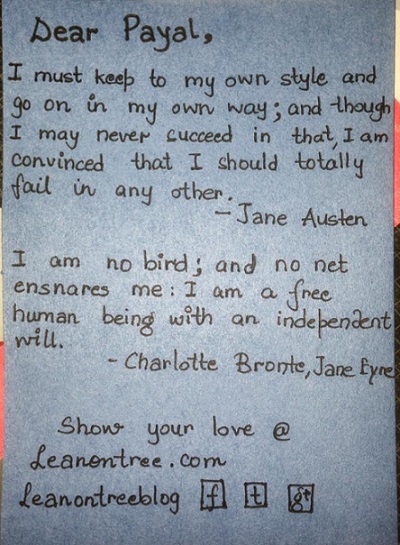 Dear Payal,
I must keep to my own style and
go on in my own way; and though
I may never succeed in that, I am
convinced that I should totally
fail in any other.
- Jane Austen
I am no bird; and no net
ensnares me: I am a free
human being with an independent
will.
- Charlotte Bronte, Jane Eyre
Show your love @
Leanontree.com
Leanontreeblog f t g+